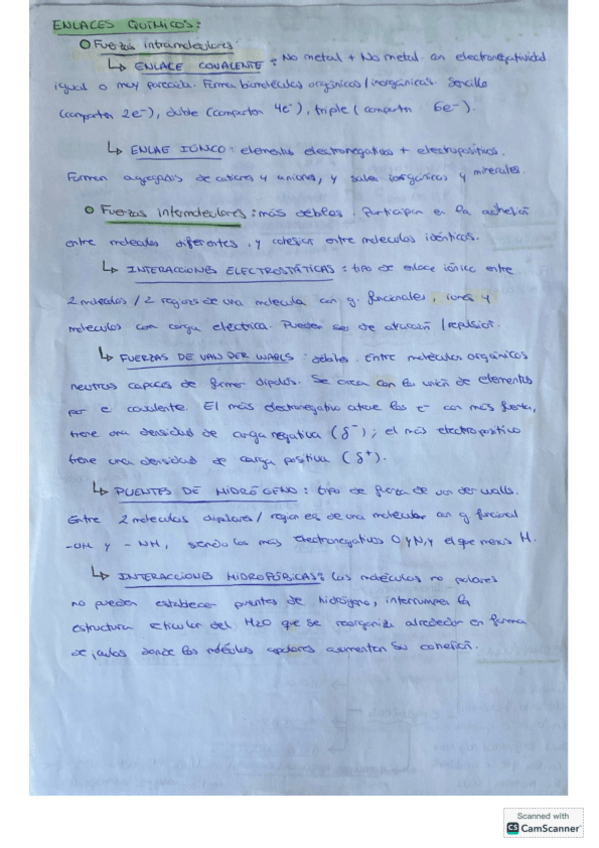 ENLACES QUÍMICOS:
Fuerzas intramoleculares:
ENLACE COVALENTE: No metal + No metal con electronegatividad
igual o muy parecida. Forma biomoléculas orgánicas/inorgánicas. Sencillo
(comparten 2e-), doble (comparten 4e-), triple (comparten 6e-).
ENLAE IÓNICO: elementos electronegativos + electropositivos.
Forman agregados de cationes y aniones, y sales inorgánicas y minerales.
Fuerzas intermoleculares: más débiles. Participan en la adhesión
entre moléculas diferentes, y cohesión entre moléculas idénticas.
INTERACCIONES ELECTROSTÁTICAS: tipo de enlace iónico entre
2 moléculas / 2 regiones de una molécula con g. funcionales, iones y
moléculas con carga eléctrica. Pueden ser de atracción / repulsión.
FUERZAS DE VAN DER WAALS: débiles. Entre moléculas orgánicas
neutras capaces de formar dipolos. Se crean con la unión de elementos
por e covalente. El más electronegativo atrae los e- con más fuerza,
tiene una densidad de carga negativa (δ-); el más electropositivo
tiene una densidad de carga positiva (δ+).
PUENTES DE HIDRÓGENO: tipo de fuerza de van der walls.
Entre 2 moléculas dipolares / regiones de una molécula con g funcional
-OH y -NH, siendo los más electronegativos O y N, y el que menos H.
INTERACCIONES HIDROFÓBICAS: Las moléculas no polares
no pueden establecer puentes de hidrógeno, interrumpen la
estructura reticular del H2O que se reorganiza alrededor en forma
de jaulas donde las moléculas apolares aumentan su cohesión.
Scanned with
CS CamScanner